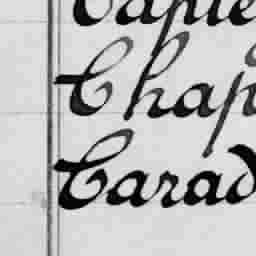 Caple
Chap
Carad